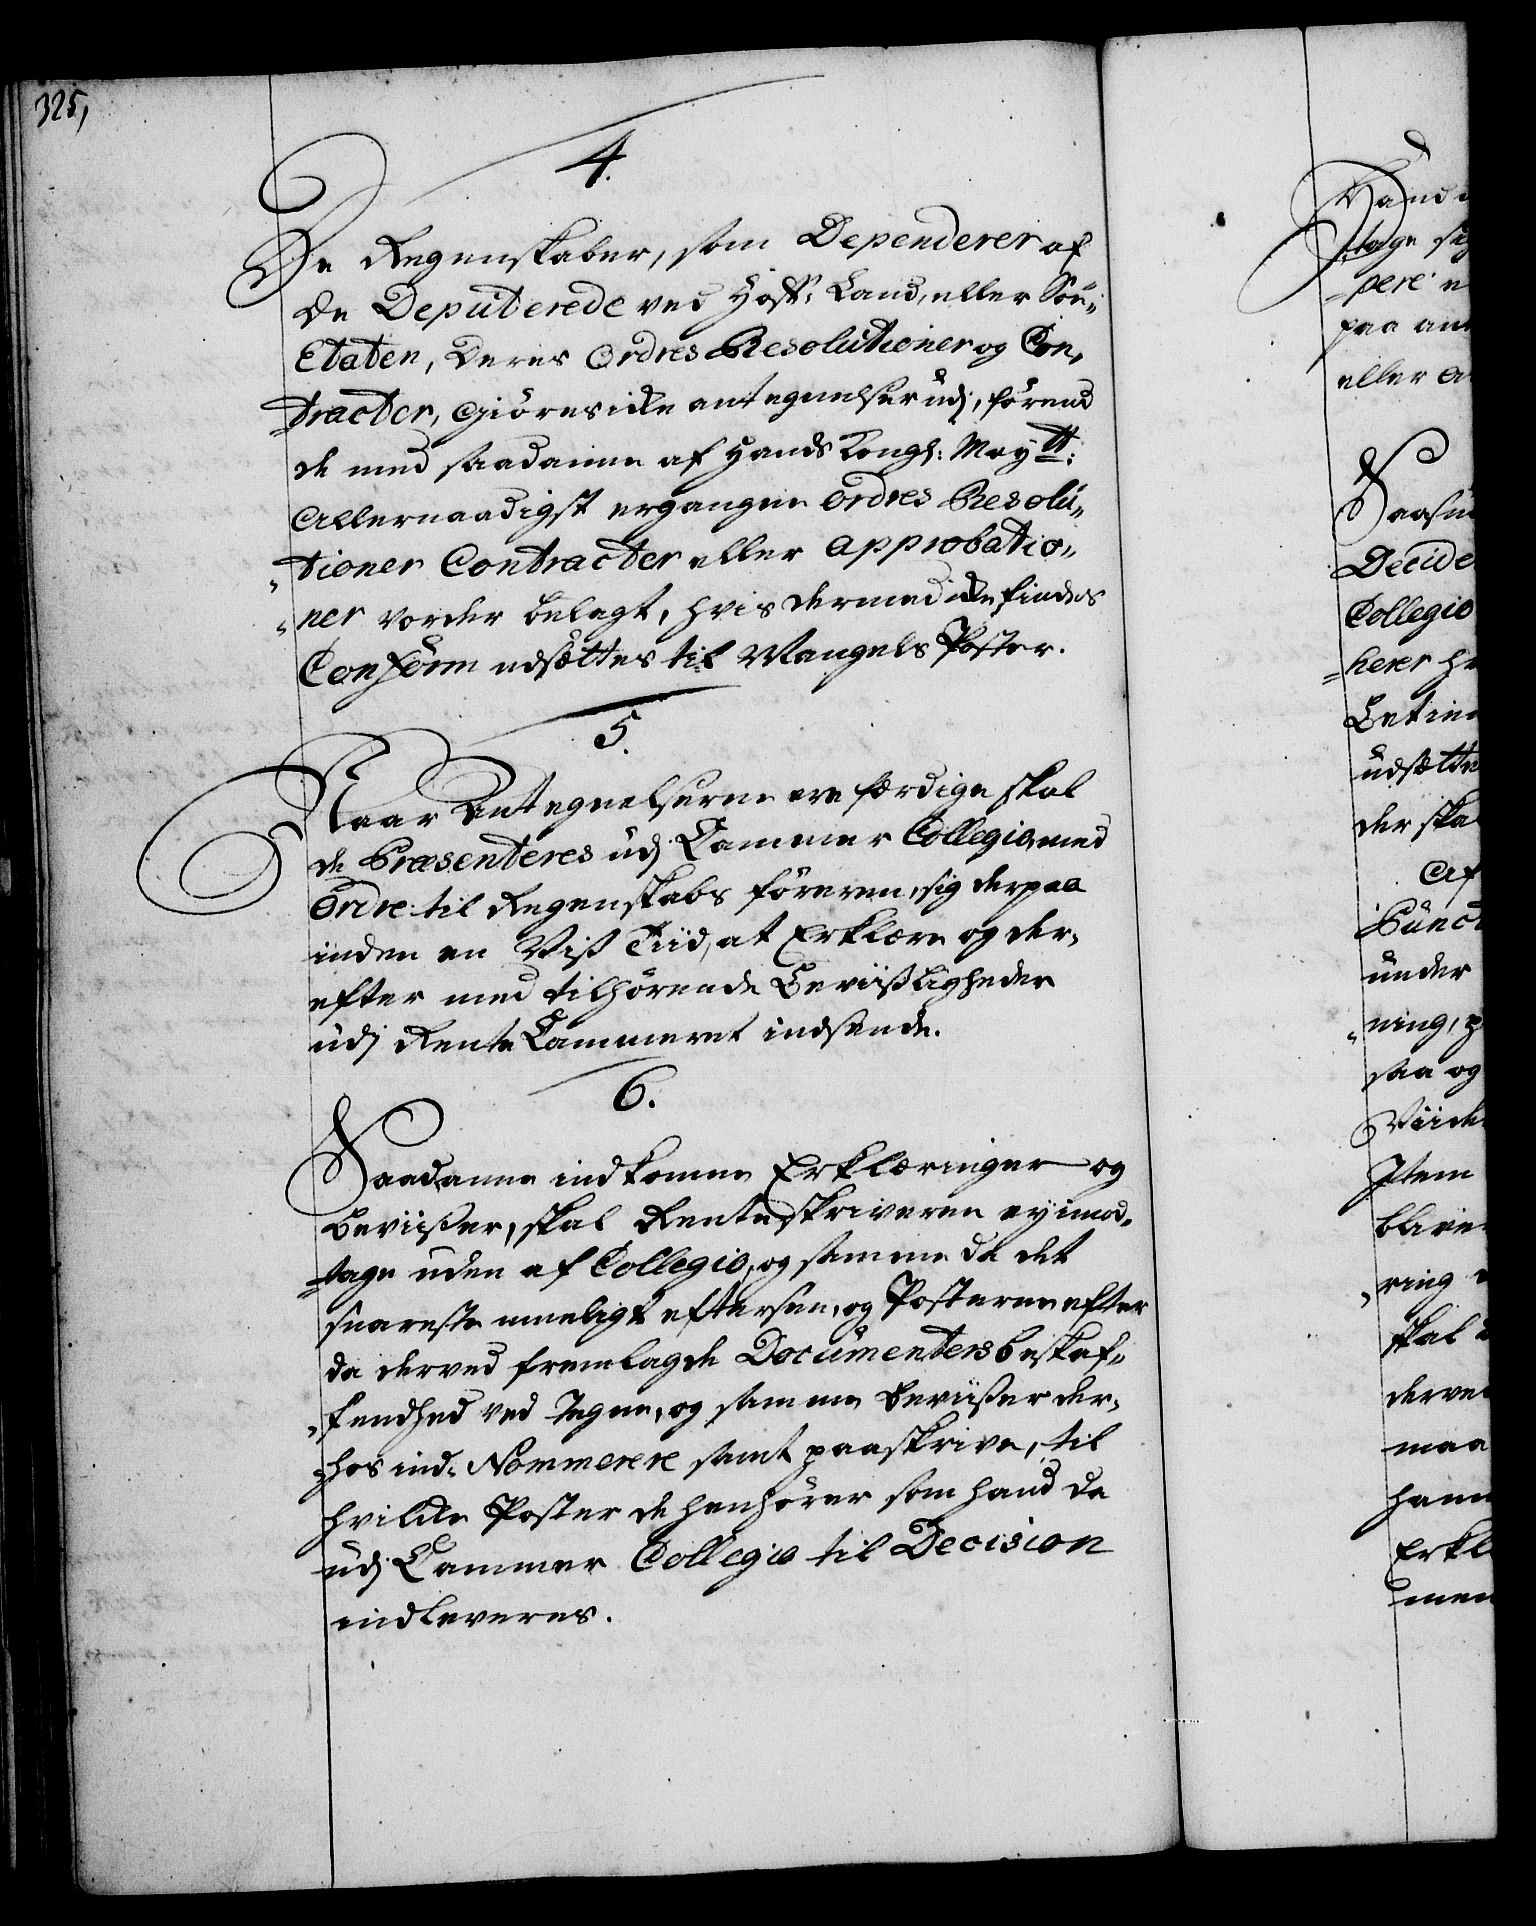 325,
4.
De Regenskaber, som Dependerer af
de Deputerede ved Hoff: Land, eller Söe-
Etaten, deres Ordres Resolutioner og Con-
tracter, giöres icke antegnelser udj, förend
de med saadanne af Hands Kongl: May:tt:
Allernaadigst ergangne ordres Resolu-
tioner Contracter eller approbatio-
ner vorder belagt, hvis dermed icke findes
Conform udsættes til Mangels Poster.
5.
Naar Antegnelserne ere færdige skal
de Præsenteres udj Cammer Collegio, med
Ordre til Regenskabs föreren, sig derpaa
inden en Viß Tiid, at Erklære og der-
efter med tilhörende Beviißligheder
udj Rente Cammeret indsende.
6.
Saadanne indkomne Erklæringer og
Beviißer, skal Renteskriveren ey imod-
tage uden af Collegio, og samme da det
snareste mueligt eftersee, og Posterne efter
da derved fremlagde Documenters beskaf-
fendhed ved Tegne, og samme Beviißer der-
hos ind- Nommerere samt paaskrive, til
hvilcke Poster de henhörer som hand da
udj Cammer Collegio til Decision
indleveres.
Hand
tage sig
pere
paa
eller
Decide
Collegio
herer
udsætte
der skal
Af
Punct
under
ning,
saa og
Viide
Item
blive
ring
skal
derved
maa
Erkl
men